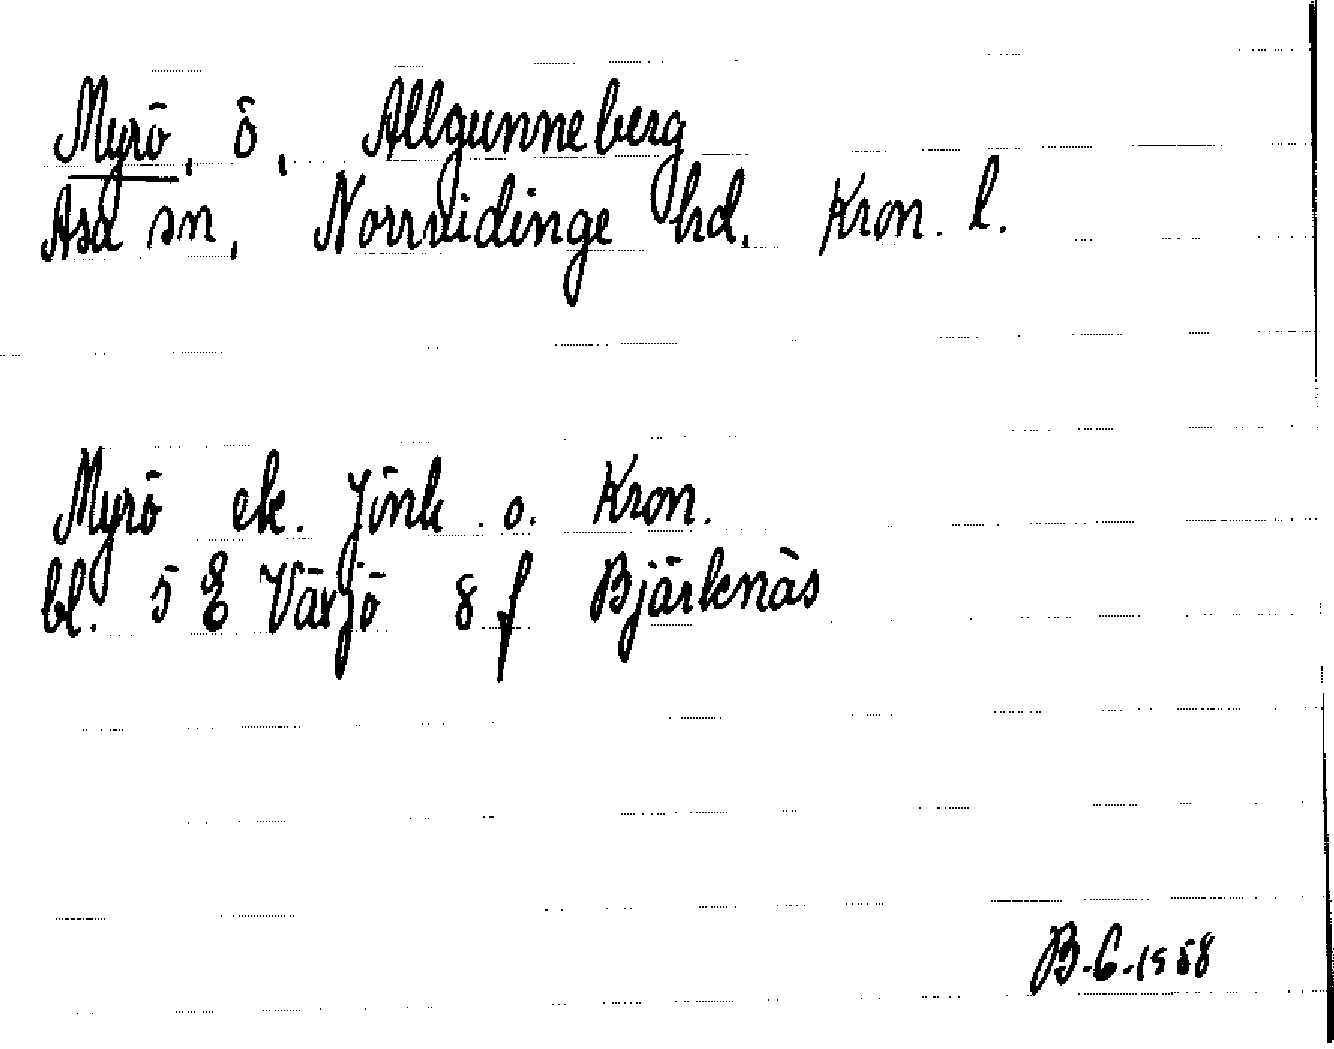 Myrö, ö, Allgunneberg
Asa sn, Norrvidinge hd. Kron. l.
Myrö ek. Jönk. o. Kron.
bl. 5 E Växjö 8 f Bjärknäs
B.G. 1958